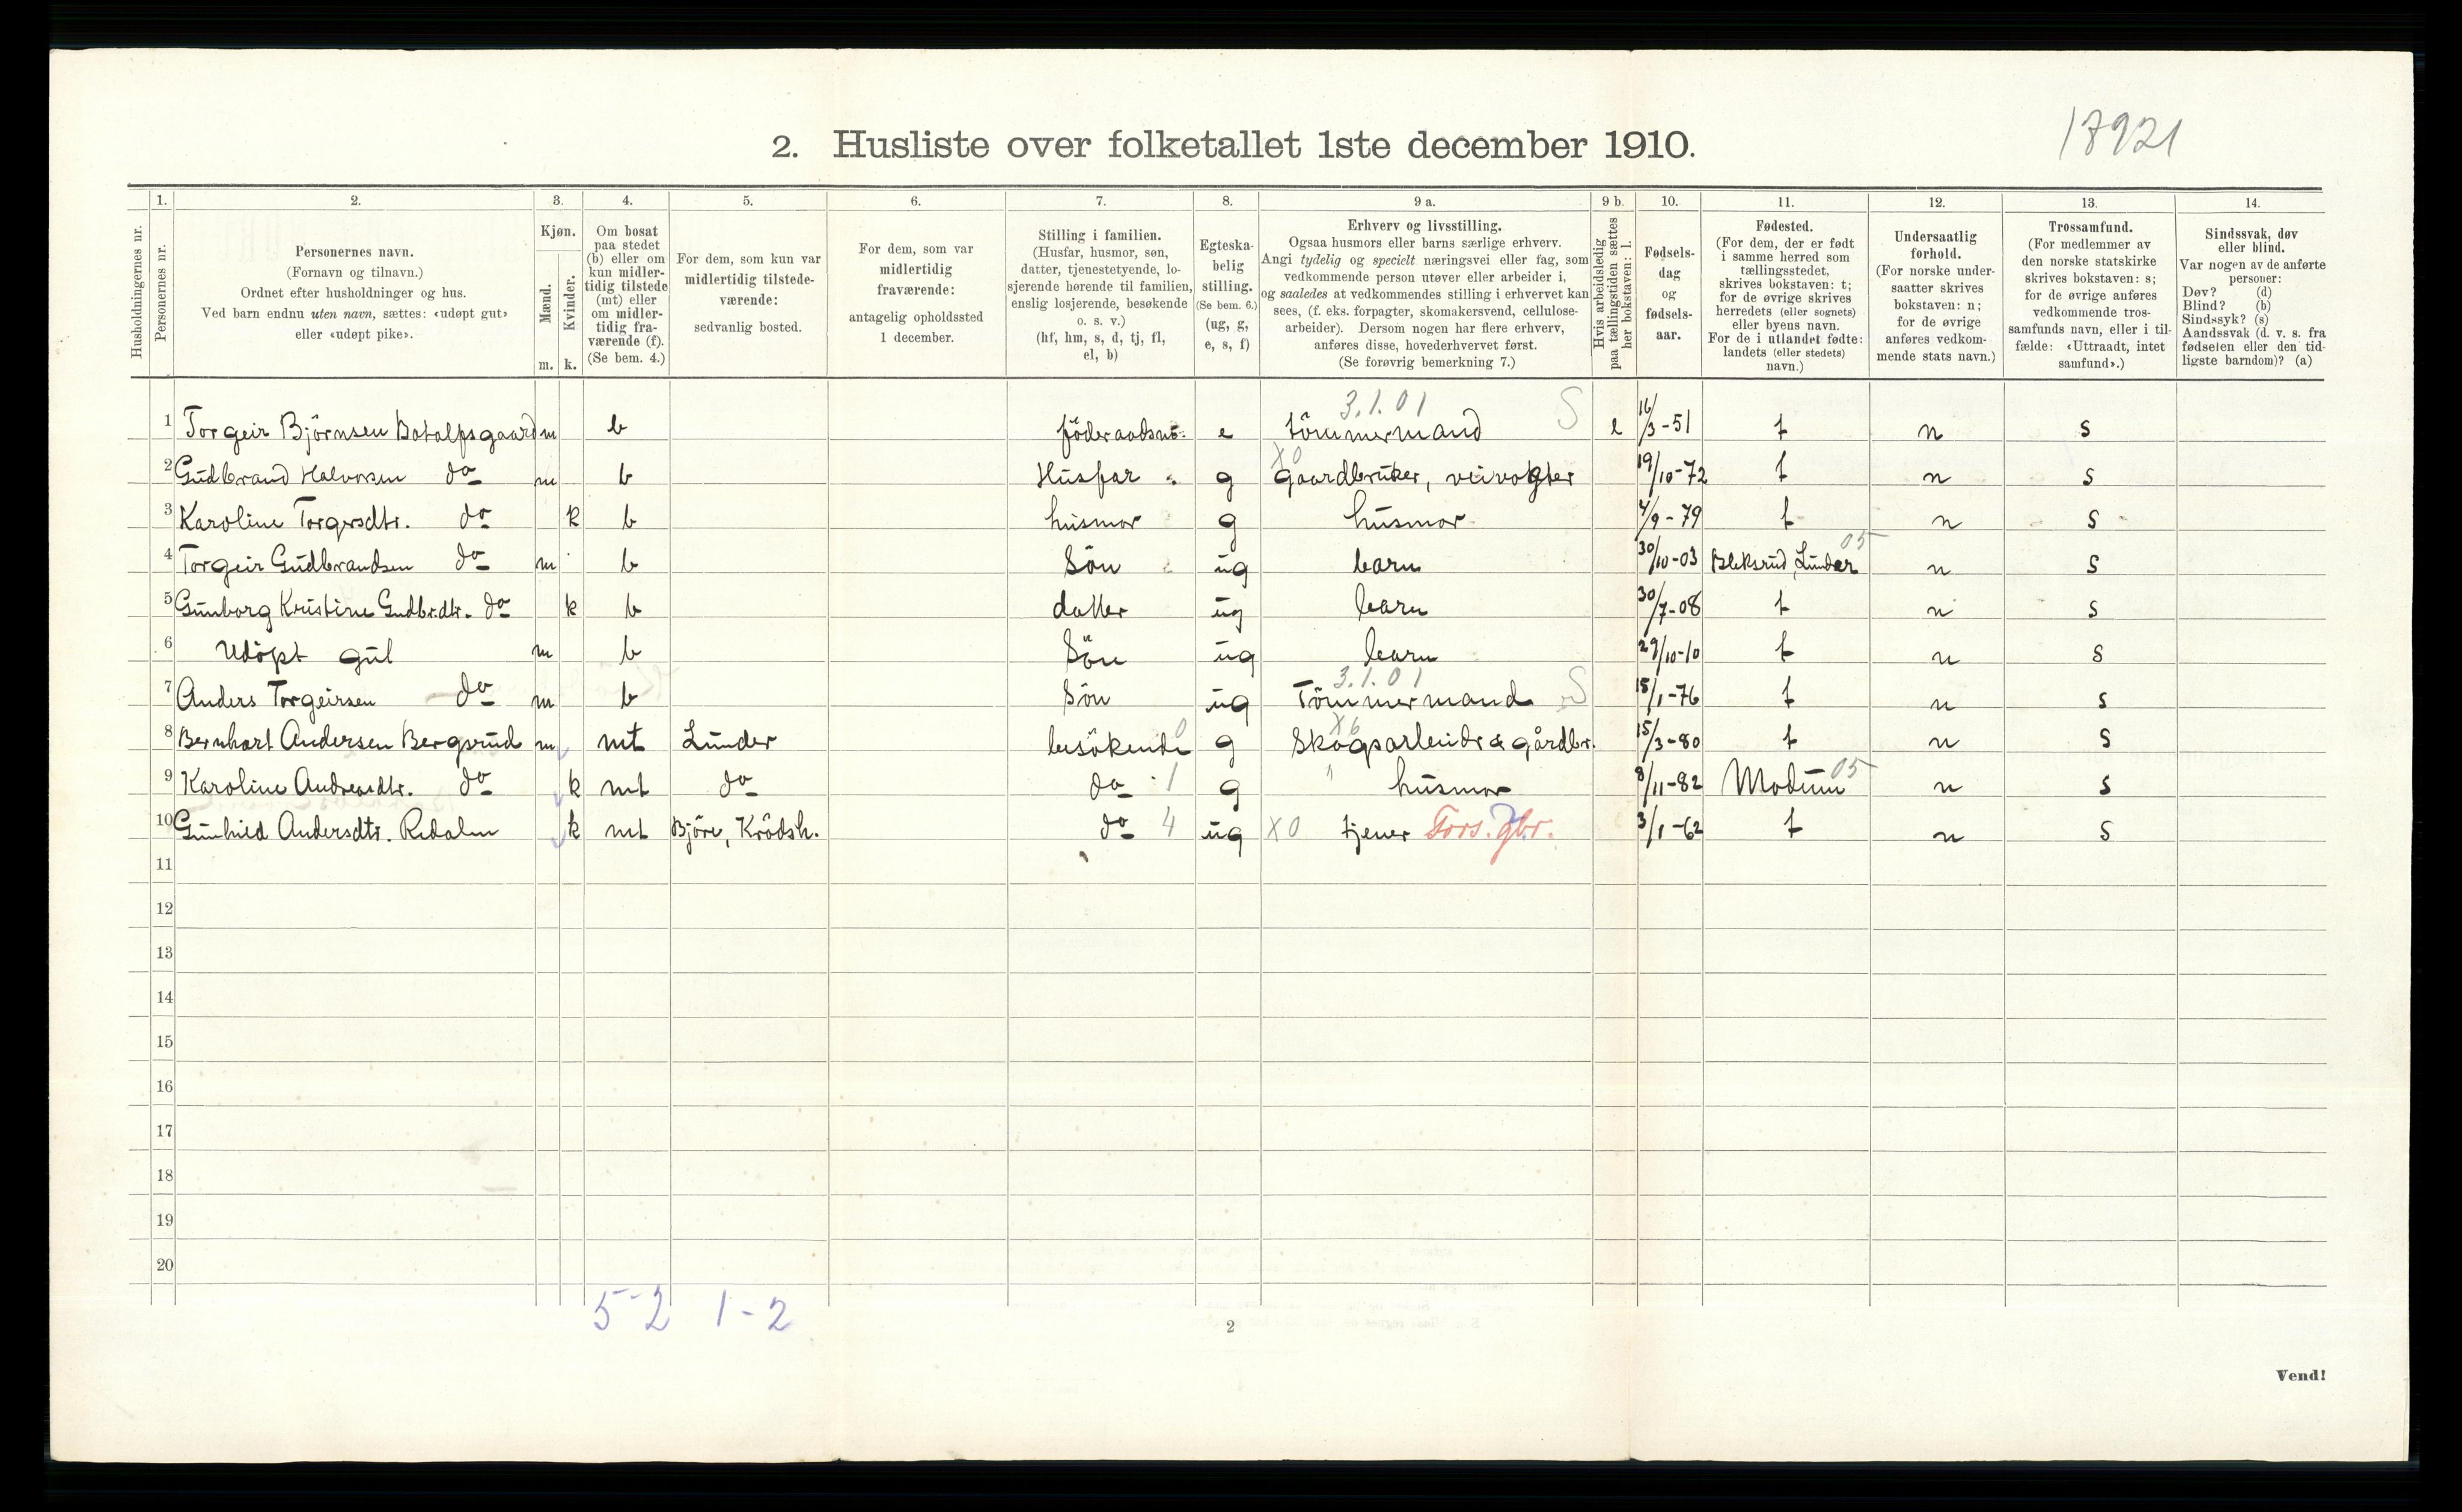 17921
2. Husliste over folketallet 1ste december 1910.
1. 2. 3. 4. 5. 6. 7. 8. 9 a. 9 b. 10. 11. 12. 13. 14.
Husholdningernes nr.
Personernes nr.
Personernes navn.
(Fornavn og tilnavn.)
Ordnet efter husholdninger og hus.
Ved barn endnu uten navn, sættes: «udøpt gut»
eller «udøpt pike».
Kjøn.
Mænd.
Kvinder.
m. k.
Om bosat
paa stedet
(b) eller om
kun midler-
tidig tilstede
(mt) eller
om midler-
tidig fra-
værende (f).
(Se bem. 4.)
For dem, som kun var
midlertidig tilstede-
værende:
sedvanlig bosted.
For dem, som var
midlertidig
fraværende:
antagelig opholdssted
1 december.
Stilling i familien.
(Husfar, husmor, søn,
datter, tjenestetyende, lo-
sjerende hørende til familien,
enslig losjerende, besøkende
o. s. v.)
(hf, hm, s, d, tj, fl,
el, b)
Egteska-
belig
stilling.
(Se bem. 6.)
(ug, g,
e, s, f)
Erhverv og livsstilling.
Ogsaa husmors eller barns særlige erhverv.
Angi tydelig og specielt næringsvei eller fag, som
vedkommende person utøver eller arbeider i,
og saaledes at vedkommendes stilling i erhvervet kan
sees, (f. eks. forpagter, skomakersvend, cellulose-
arbeider). Dersom nogen har flere erhverv,
anføres disse, hovederhvervet først.
(Se forøvrig bemerkning 7.)
Hvis arbeidsledig
paa tællingstiden sættes
her bokstaven: l.
Fødsels-
dag
og
fødsels-
aar.
Fødested.
(For dem, der er født
i samme herred som
tællingsstedet,
skrives bokstaven: t;
for de øvrige skrives
herredets (eller sognets)
eller byens navn.
For de i utlandet fødte:
landets (eller stedets)
navn.)
Undersaatlig
forhold.
(For norske under-
saatter skrives
bokstaven: n;
for de øvrige
anføres vedkom-
mende stats navn.)
Trossamfund.
(For medlemmer av
den norske statskirke
skrives bokstaven: s;
for de øvrige anføres
vedkommende tros-
samfunds navn, eller i til-
fælde: «Uttraadt, intet
samfund».)
Sindssvak, døv
eller blind.
Var nogen av de anførte
personer:
Døv? (d)
Blind? (b)
Sindssyk? (s)
Aandssvak (d. v. s. fra
fødselen eller den tid-
ligste barndom)? (a)
3.1.01 S
1 Torgeir Björnsen Botolfsgaard m b föderaadsm: e tömmermand l 16/3-51 t n s
X0
2 Gudbrand Halvorsen do m b Husfar g Gaardbruker, veivogter 19/10-72 t n s
3 Karoline Torgersdtr. do k b husmor g husmor 4/9-79 t n s
05
4 Torgeir Gudbrandsen do m b Sön ug barn 30/10-03 Bleksrud, Lunder n s
5 Gunborg Kristine Gudbr.dtr. do k b datter ug barn 30/7-08 t n s
6 Udöpt gut m b Sön ug barn 29/10-10 t n s
3.1.01 S
7 Anders Torgeirsen do m b Sön ug Tömmermand 15/1-76 t n s
0 X6
8 Bernhart Andersen Bergsrud m mt Lunder besökende g Skogsarbeider & gårdbr. 15/3-80 t n s
9 Karoline Andreasdtr. do k mt do do 1 g " husmor 8/11-82 Modum 05 n s
10 Gunhild Andersdtr. Redalen k mt Björe, Krödsh. do 4 ug X0 tjener Fors. gbr. 3/1-62 t n s
11
12
13
14
15
16
17
18
19
20
5-2 1-2
2
Vend!